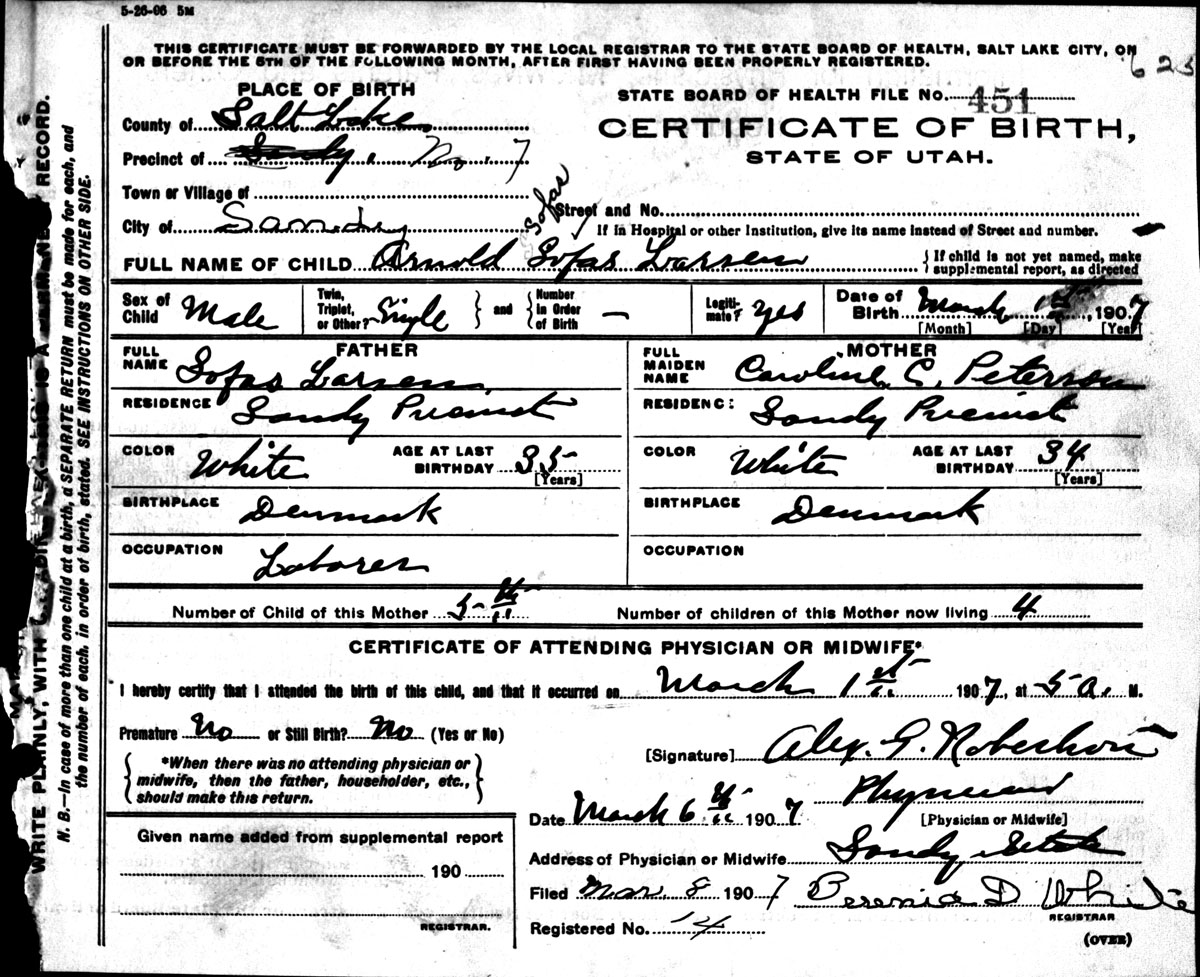 5-26-06 5M
THIS CERTIFICATE MUST BE FORWARDED BY THE LOCAL REGISTRAR TO THE STATE BOARD OF HEALTH, SALT LAKE CITY, ON
OR BEFORE THE 5TH OF THE FOLLOWING MONTH, AFTER FIRST HAVING BEEN PROPERLY REGISTERED.
623
PLACE OF BIRTH
STATE BOARD OF HEALTH FILE NO. 451
County of Salt Lake
CERTIFICATE OF BIRTH,
Precinct of Sandy. No. 7
STATE OF UTAH.
Town or Village of
Sofas
Street and No.
City of Sandy
If in Hospital or other Institution, give its name instead of Street and number.
FULL NAME OF CHILD Arnold Sofas Larsen
If child is not yet named, make
supplemental report, as directed
Sex of Child Male
Twin, Triplet, or Other? Single
and Number in Order of Birth —
Legitimate? Yes
Date of Birth March 1st, 1907
[Month] [Day] [Year]
FATHER
FULL NAME Sofas Larsen
RESIDENCE Sandy Precinct
COLOR White AGE AT LAST BIRTHDAY 35
[Years]
BIRTHPLACE Denmark
OCCUPATION Laborer
MOTHER
FULL MAIDEN NAME Caroline C. Peterson
RESIDENC: Sandy Precinct
COLOR White AGE AT LAST BIRTHDAY 34
[Years]
BIRTHPLACE Denmark
OCCUPATION
Number of Child of this Mother 5th
Number of children of this Mother now living 4
CERTIFICATE OF ATTENDING PHYSICIAN OR MIDWIFE*
I hereby certify that I attended the birth of this child, and that it occurred on March 1st 1907, at 5 a. M.
Premature No or Still Birth? No (Yes or No)
*When there was no attending physician or
midwife, then the father, householder, etc.,
should make this return.
[Signature] Alex. G. Robertson
Physician
[Physician or Midwife]
Date March 6th 1907
Address of Physician or Midwife Sandy Utah
Filed Mar. 8 1907
D White
REGISTRAR
Registered No. 14
(OVER)
Given name added from supplemental report
190
REGISTRAR.
WRITE PLAINLY, WITH RECORD.
N. B.—In case of more than one child at a birth, a SEPARATE RETURN must be made for each, and
the number of each, in order of birth, stated. SEE INSTRUCTIONS ON OTHER SIDE.